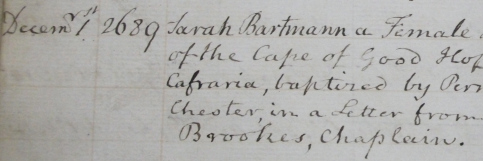 Decemr 1st 2689 Sarah Bartmann a Female
of the Cape of Good
Cafraria, baptized by
Chester, in a Letter from
Brookes, Chaplain.